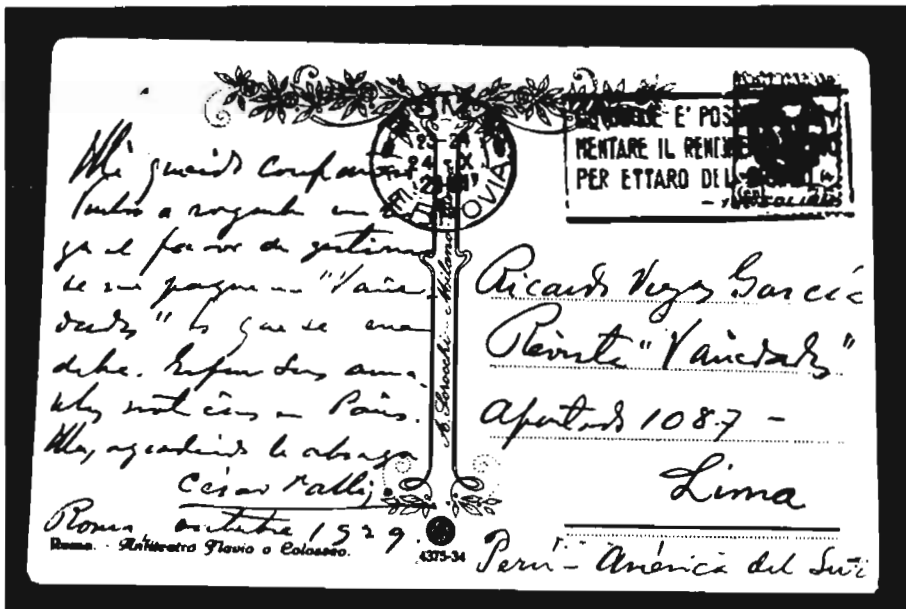 Mi querido compañero:
Vuelvo a rogarle me
ga el favor de gestionar
se me pague en "Varie-
dades" lo que se me
debe. Espero sus ama-
bles noticias en París.
Muy agradecido le abraza
César Vallejo
Roma octubre 1929.
Roma. - Anfiteatro Flavio o Colosseo.
23-24
24 X
FERROVIA
A. Scrocchi - Milano
4375-34
E' POS
MENTARE IL RENDI
PER ETTARO DEL
Ricardo Vegas García
Revista "Variedades"
Apartado 1087 -
Lima
Perú - América del Sur